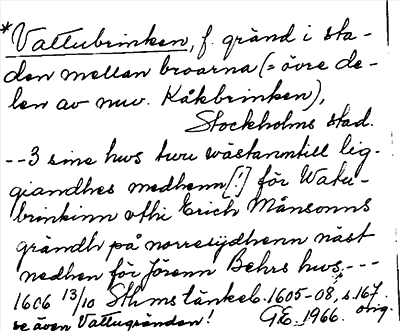 *Vattubrinken, f. gränd i sta-
den mellan broarna (= övre de-
len av nuv. Kåkbrinken),
Stockholms stad.
--3 sine hws twu wästanntill lig-
giandhes medhenn [!] för Watu-
brinkinn uthi Erich Månsonns
grändh på norresijdhenn näst
nedhen för Jörenn Behrs hws.---
1606 13/10 Sthms tänkeb. 1605-08, s. 167.
se även Vattugränden! G.E. 1966. orig.